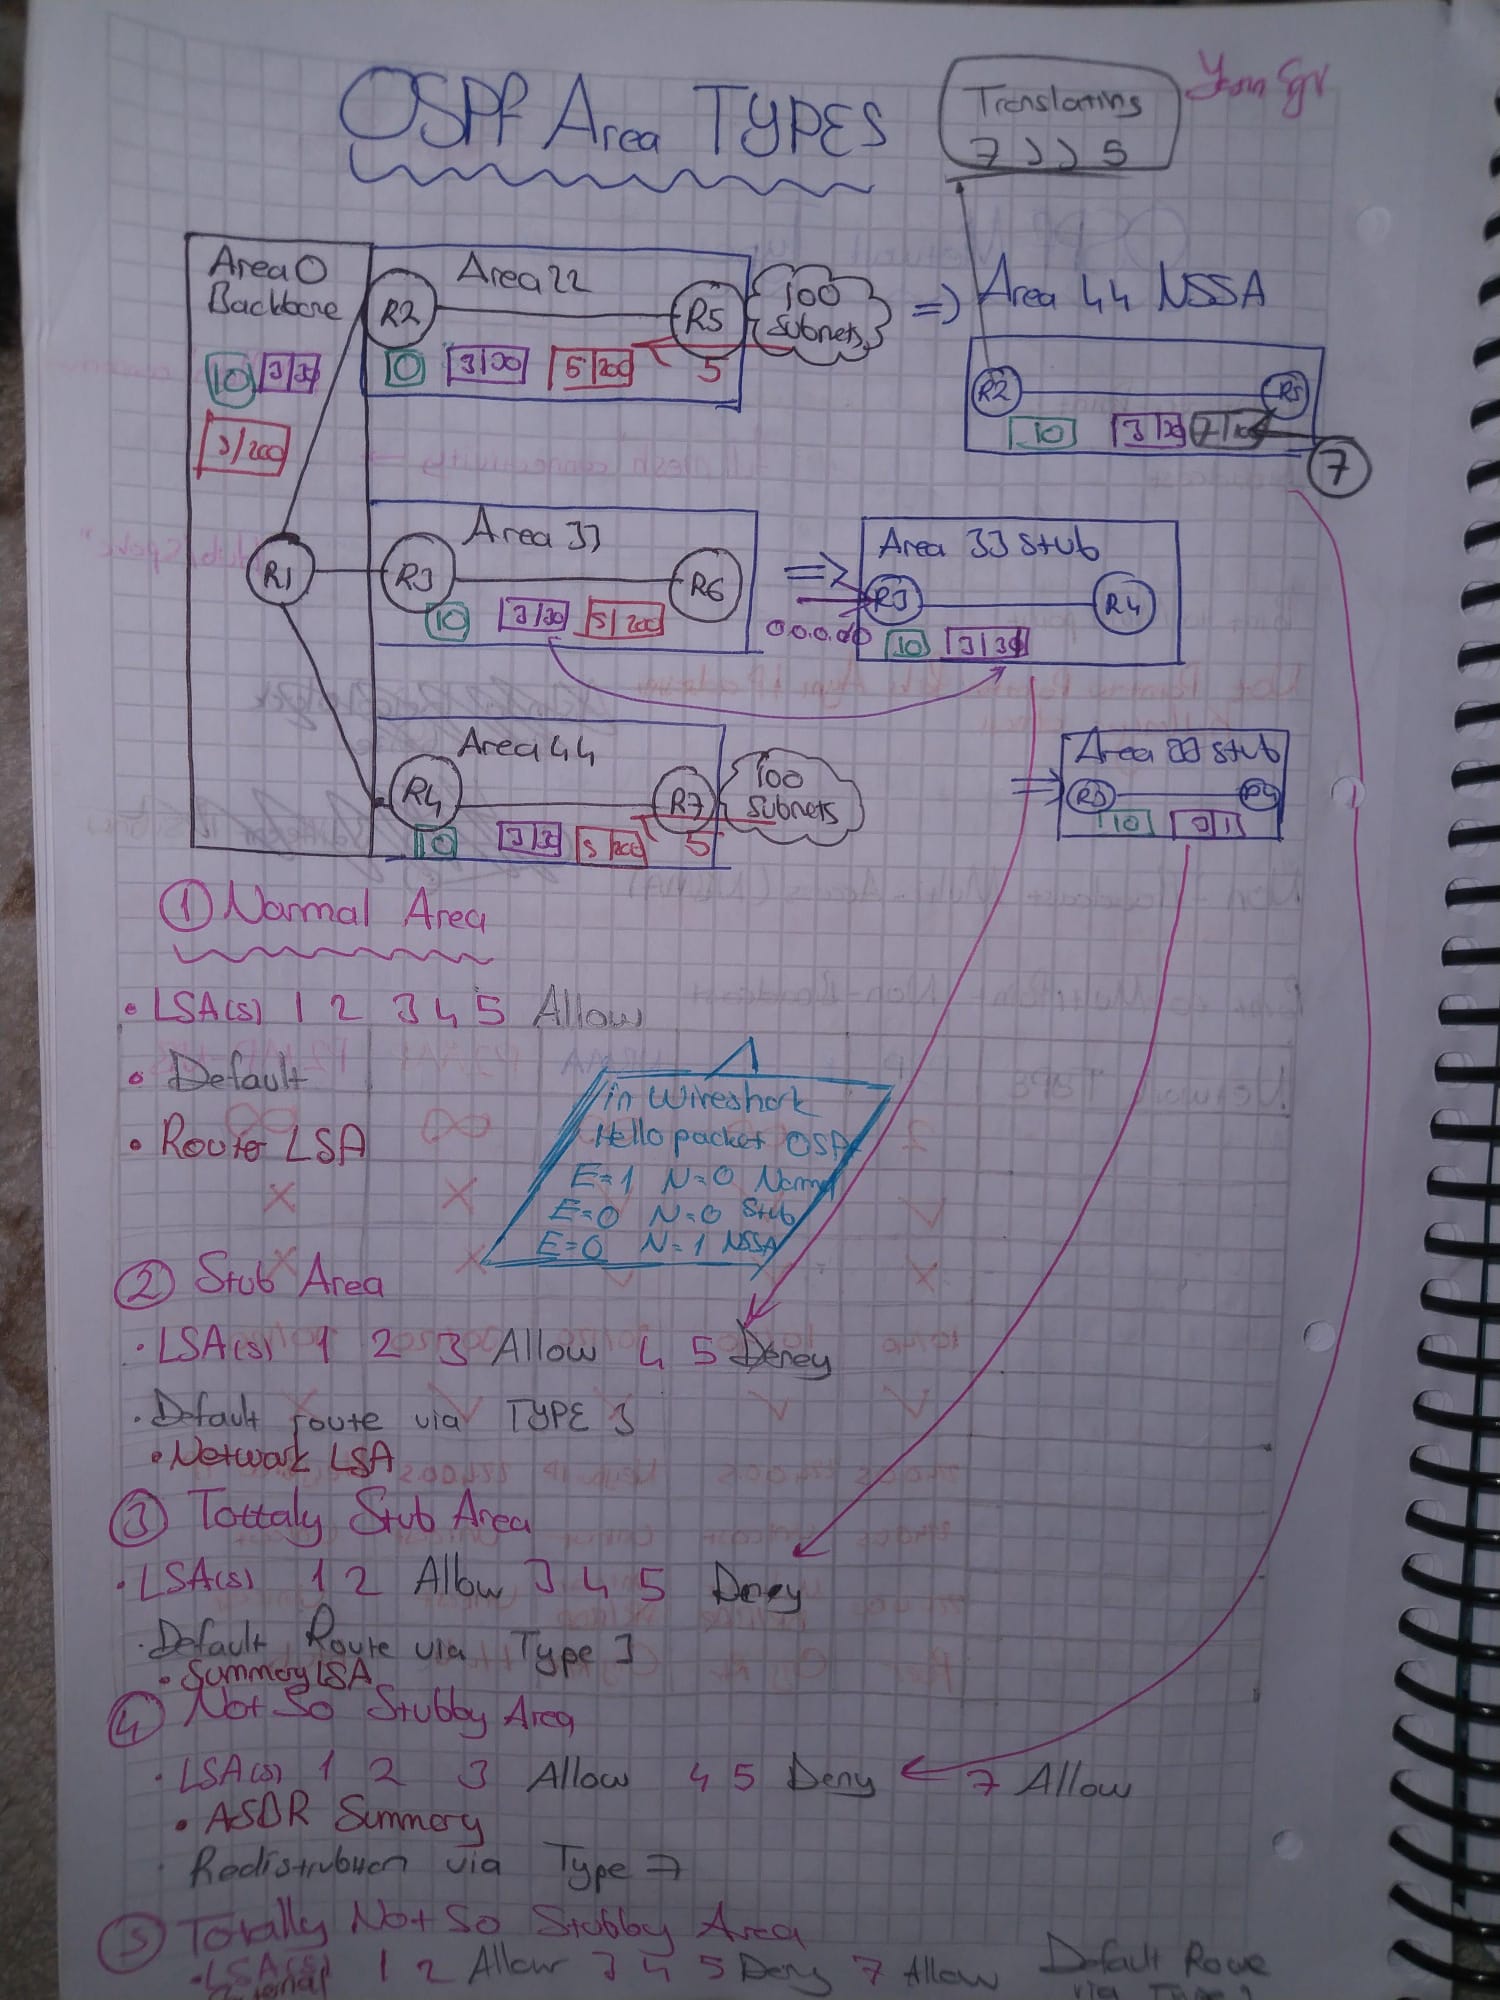 OSPF Area TYPES
Translating
7 >> 5
Area 0
Backbone
10 3/30
3/200
R1
Area 22
R2 R5
10 3/30 5/200 5
100
Subnets
=> Area 44 NSSA
R2 R5
10 3/30
7
Area 33
R3 R6
10 3/30 5/200
=>
Area 33 Stub
R3 R4
0.0.0.0
10 3/30
Area 44
R4 R7
10 3/30 5/200 5
100
Subnets
=>
Area 33 Stub
10 3/1
1 Normal Area
• LSA(s) 1 2 3 4 5 Allow
• Default
• Router LSA
in Wireshark
Hello packet OSPF
E=1 N=0 Normal
E=0 N=0 Stub
E=0 N=1 NSSA
2 Stub Area
• LSA(s) 1 2 3 Allow 4 5 Deney
• Default route via TYPE 3
• Network LSA
3 Tottaly Stub Area
• LSA(s) 1 2 Allow 3 4 5 Deney
• Default Route via Type 3
• Summery LSA
4 Not So Stubby Area
• LSA(s) 1 2 3 Allow 4 5 Deny 7 Allow
• ASBR Summery
• Redistrubution via Type 7
5 Totally Not So Stubby Area
• LSA(s) 1 2 Allow 3 4 5 Deny 7 Allow Default Roue
via Type 3